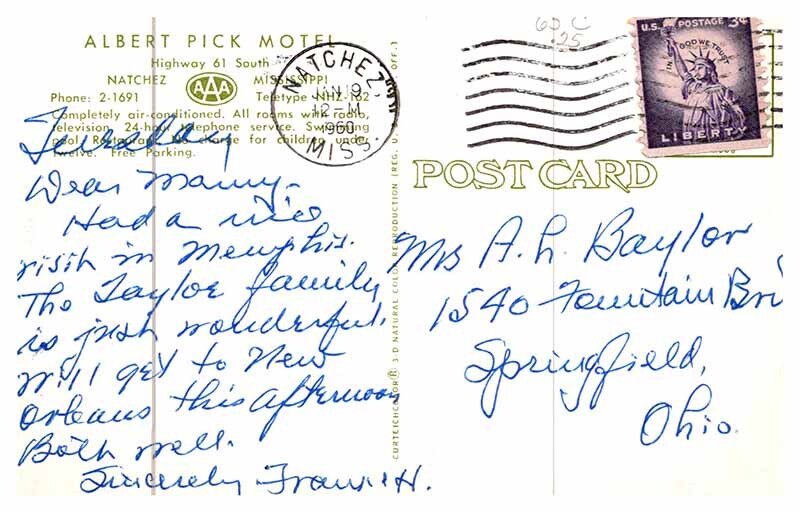 ALBERT PICK MOTEL
Highway 61 South
NATCHEZ AAA MISSISSIPPI
Phone: 2-1691 Teletype NHZ-162
Completely air-conditioned. All rooms with radio,
television, 24-hour telephone service. Swimming
pool. Restaurant. No charge for children under
twelve. Free Parking.
Tuesday
Dear Mamy-
Had a nice
visit in Memphis.
The Taylor family
is just wonderful.
Will get to New
Orleans this afternoon
Both well.
Sincerely Frannie H.
NATCHEZ
JAN 19
12-M
1960
MISS.
CURTEICHCOLOR® 3-D NATURAL COLOR REPRODUCTION (REG. U.S. OFF.)
60 C
25
U.S. POSTAGE 3¢
IN GOD WE TRUST
LIBERTY
POST CARD
Mrs A. L. Baylor
1540 Fountain Bri
Springfield,
Ohio.